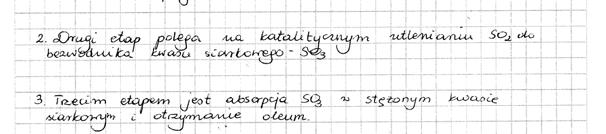 2. Drugi etap polega na katalitycznym utlenianiu SO2 do
bezwodnika kwasu siarkowego - SO3
3. Trzecim etapem jest absorpcja SO3 w stężonym kwasie
siarkowym i otrzymanie oleum.